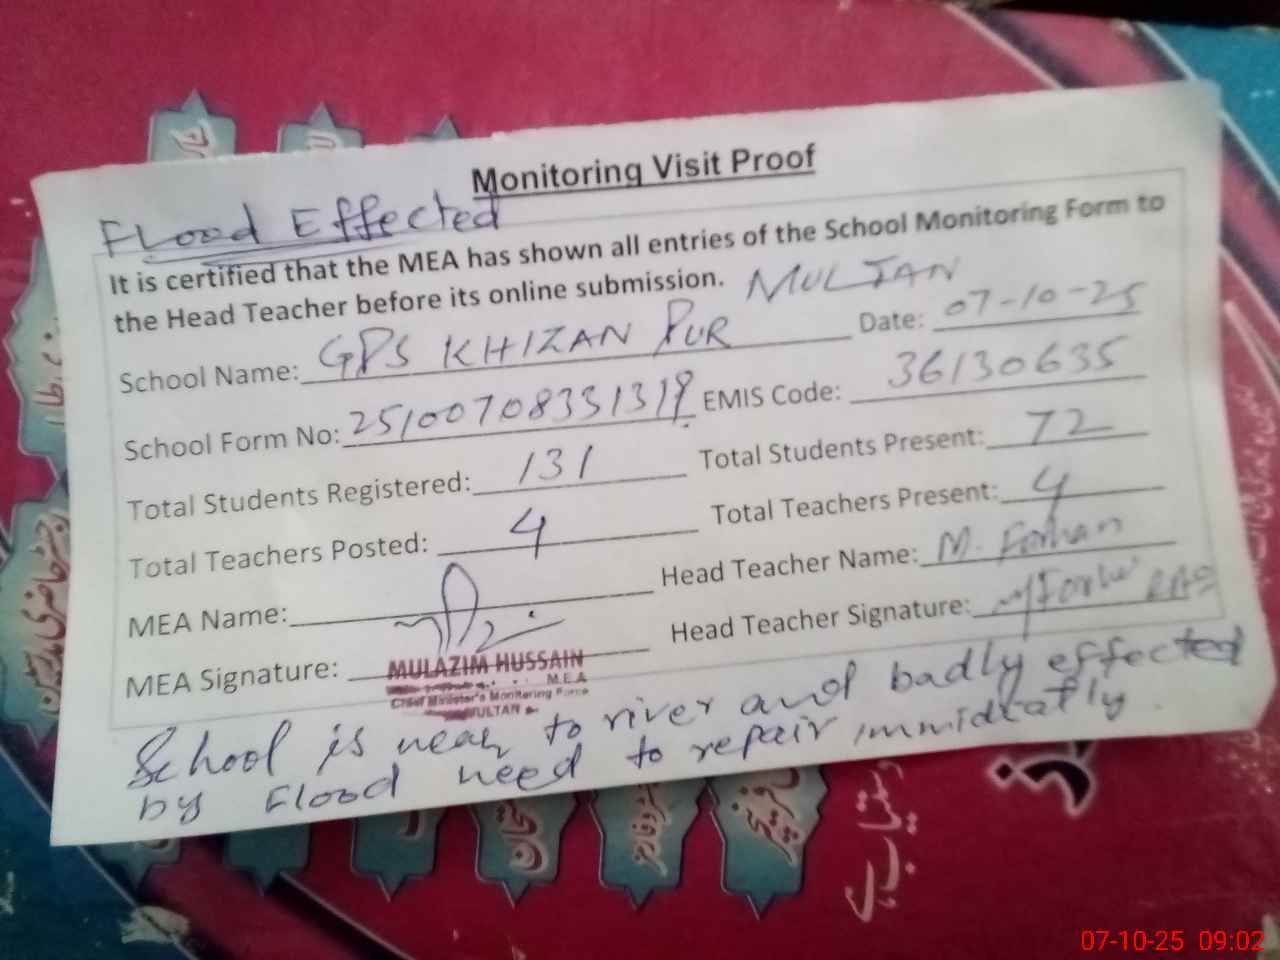 Monitoring Visit Proof
Flood Effected
It is certified that the MEA has shown all entries of the School Monitoring Form to
the Head Teacher before its online submission. MULTAN
School Name: GPS KHIZAN PUR Date: 07-10-25
School Form No: 25100708331319 EMIS Code: 36130635
Total Students Registered: 131 Total Students Present: 72
Total Teachers Posted: 4 Total Teachers Present: 4
MEA Name: Head Teacher Name: M. Farhan
MEA Signature: Head Teacher Signature:
MULAZIM HUSSAIN
M.E.A
Chief Minister's Monitoring Force
MULTAN
School is near to river and badly effected
by Flood need to repair immidiatly.
07-10-25 09:02